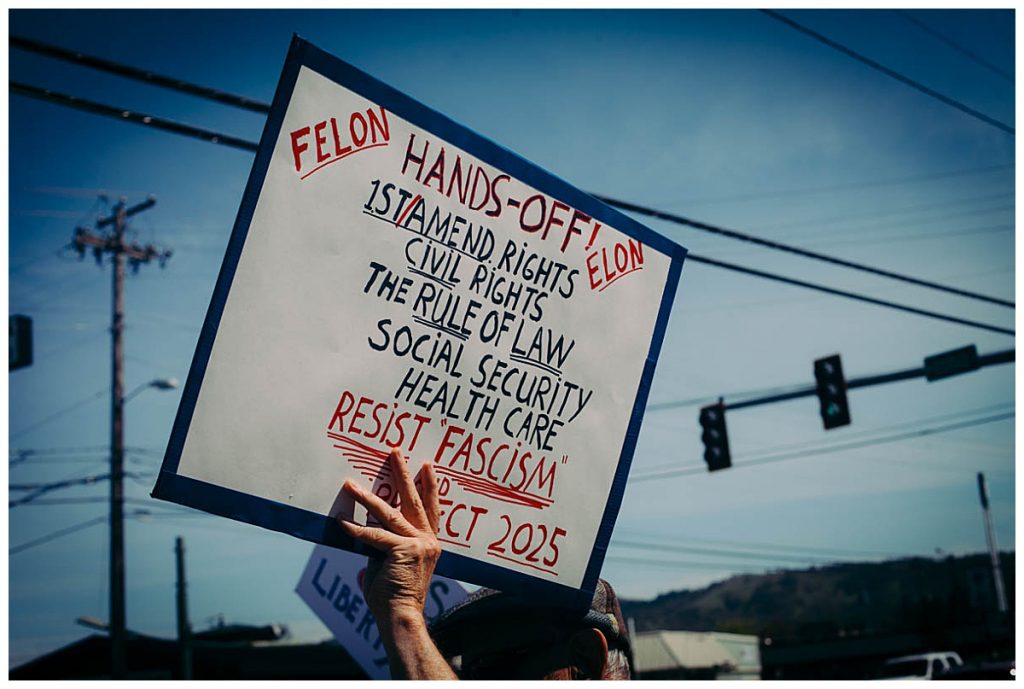 FELON
HANDS-OFF!
ELON
1ST/AMEND. RIGHTS
CIVIL RIGHTS
THE RULE OF LAW
SOCIAL SECURITY
HEALTH CARE
RESIST "FASCISM"
2025
LIBERTY